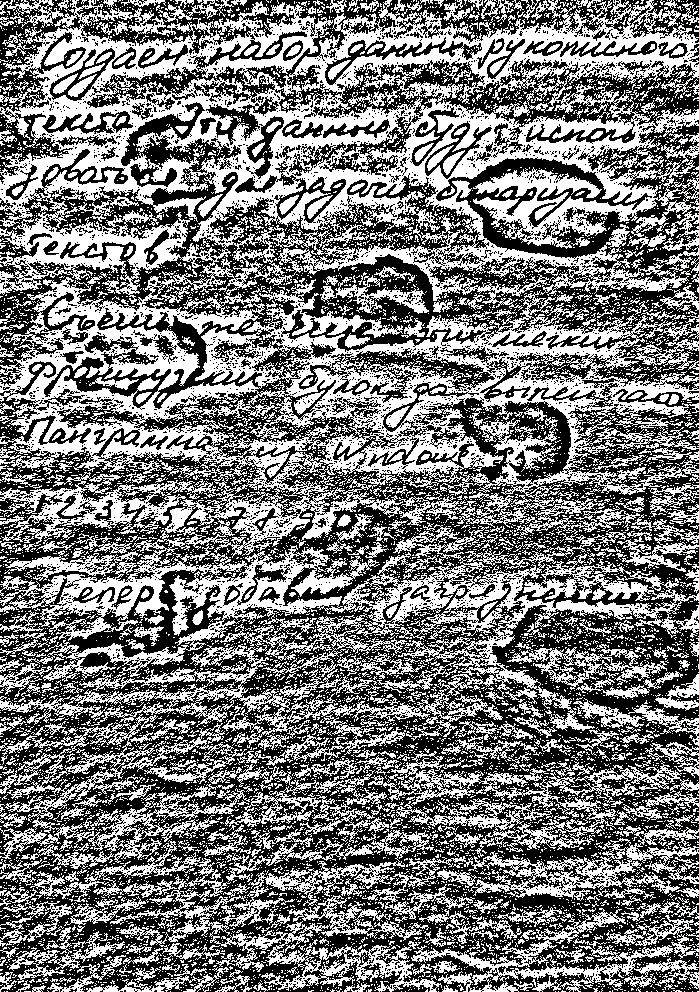 Создаем набор данных рукописного
текста Эти данные будут исполь
зоваться для задачи бинаризации
текстов
Съешь же ещё этих мягких
французских булок да выпей чаю
Панграмма из Windows 95
1 2 3 4 5 6 7 8 9 0
Теперь добавим загрязнений